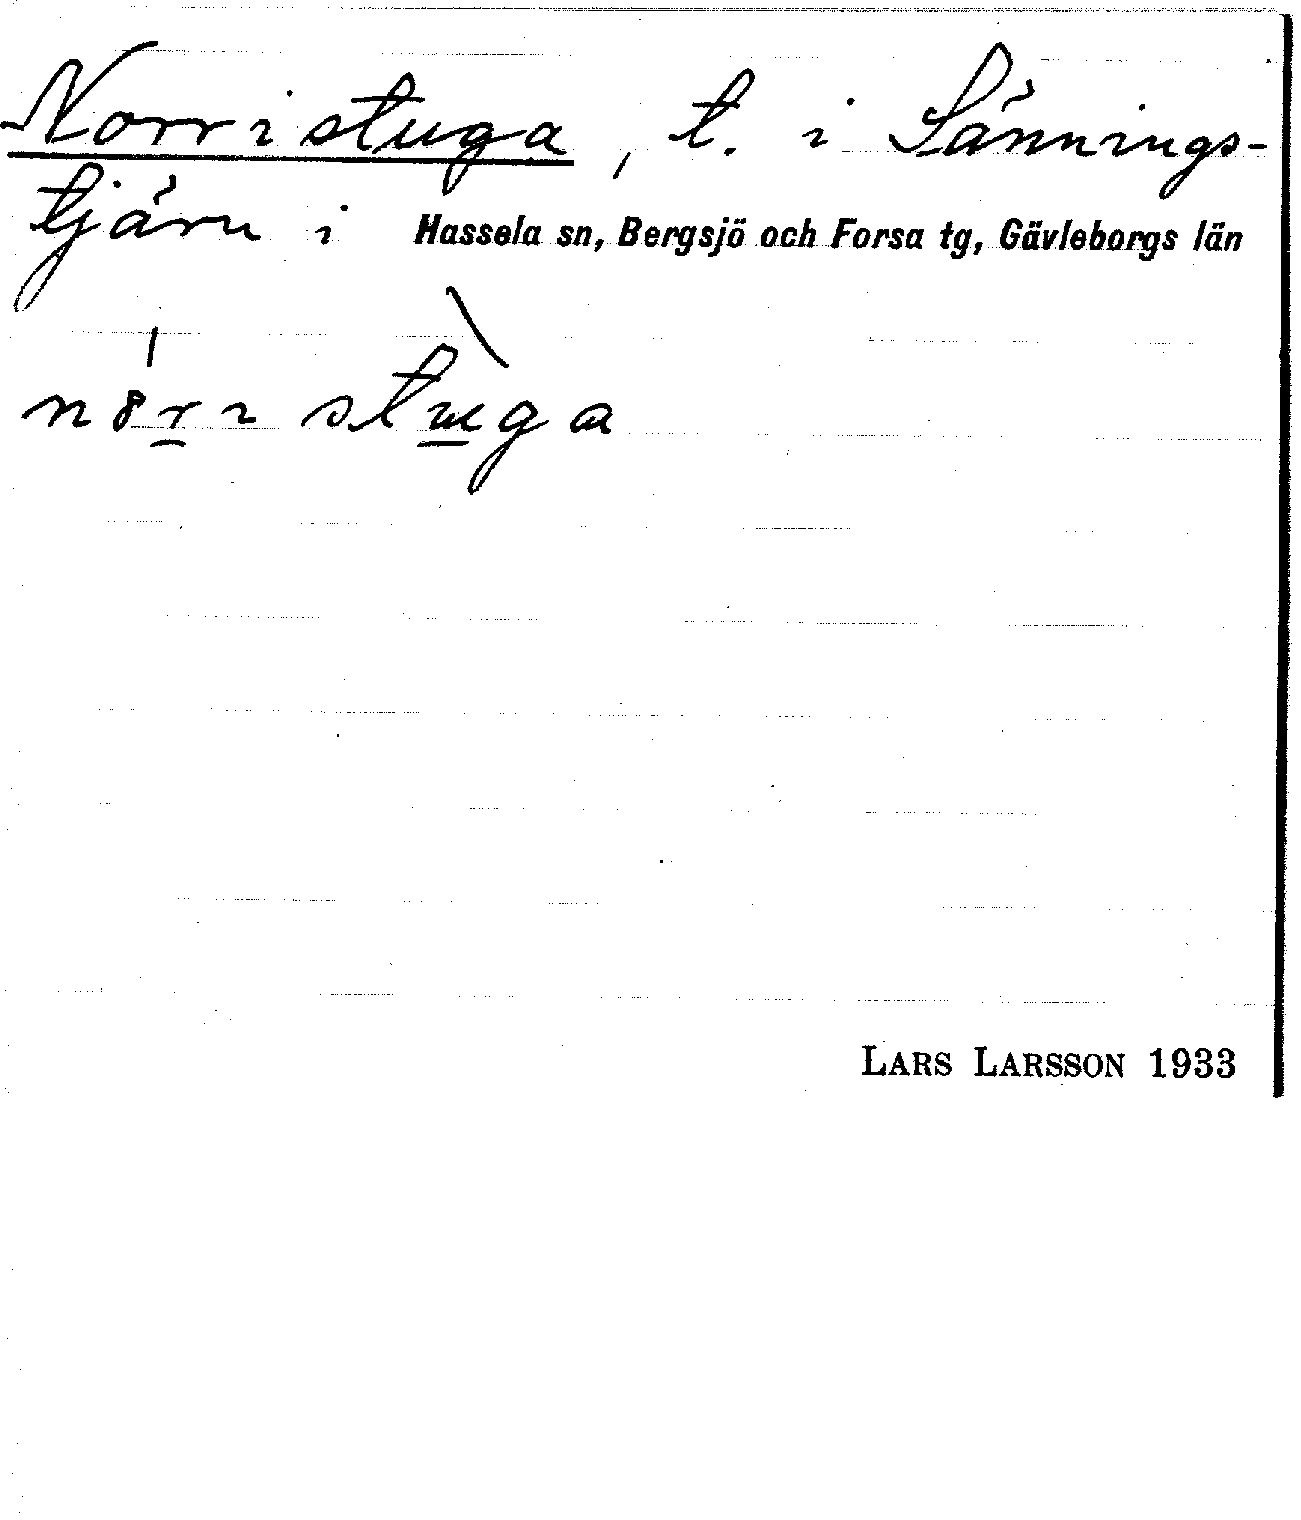 Norristuga, t. i Sännings-
tjärn i Hassela sn, Bergsjö och Forsa tg, Gävleborgs län
LARS LARSSON 1933